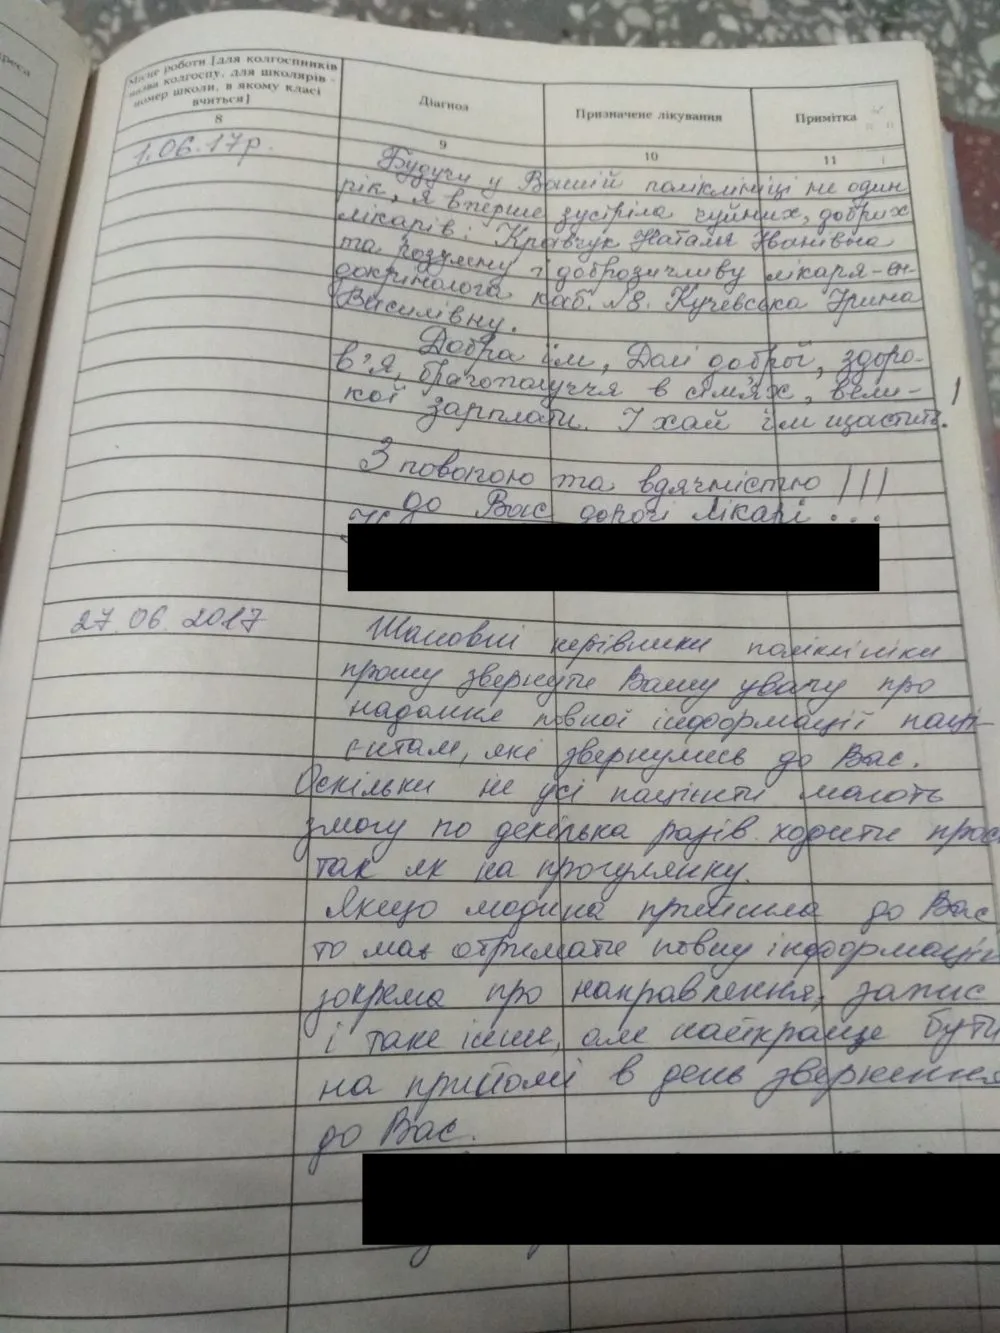 реса
Місце роботи [для колгоспників
назва колгоспу, для школярів -
номер школи, в якому класі
вчиться]
Діагноз
Призначене лікування
Примітка
8
9
10
11
1.06.17р.
Будучи у Вашій поліклініці не один
рік, я вперше зустріла чуйних, добрих
лікарів: Кравчук Наталя Іванівна
та розумну і доброзичливу лікаря-ен-
докринолога каб. №8. Кучевська Ірина
Василівну.
Добра їм, Долі доброї, здоро-
в'я, благополуччя в сім'ях, вели-
кої зарплати. І хай їм щастить.
З повагою та вдячністю !!!
до Вас дорогі лікарі...
27.06.2017
Шановні керівники поліклініки
прошу звернути Вашу увагу про
надання повної інформації паці-
єнтам, які звернулись до Вас.
Оскільки не усі пацієнти мають
змогу по декілька разів ходити прос
так як на прогулянку.
Якщо людина прийшла до Вас
то має отримати повну інформацію
зокрема про направлення, запис
і таке інше, але найкраще бути
на прийомі в день звернення
до Вас.